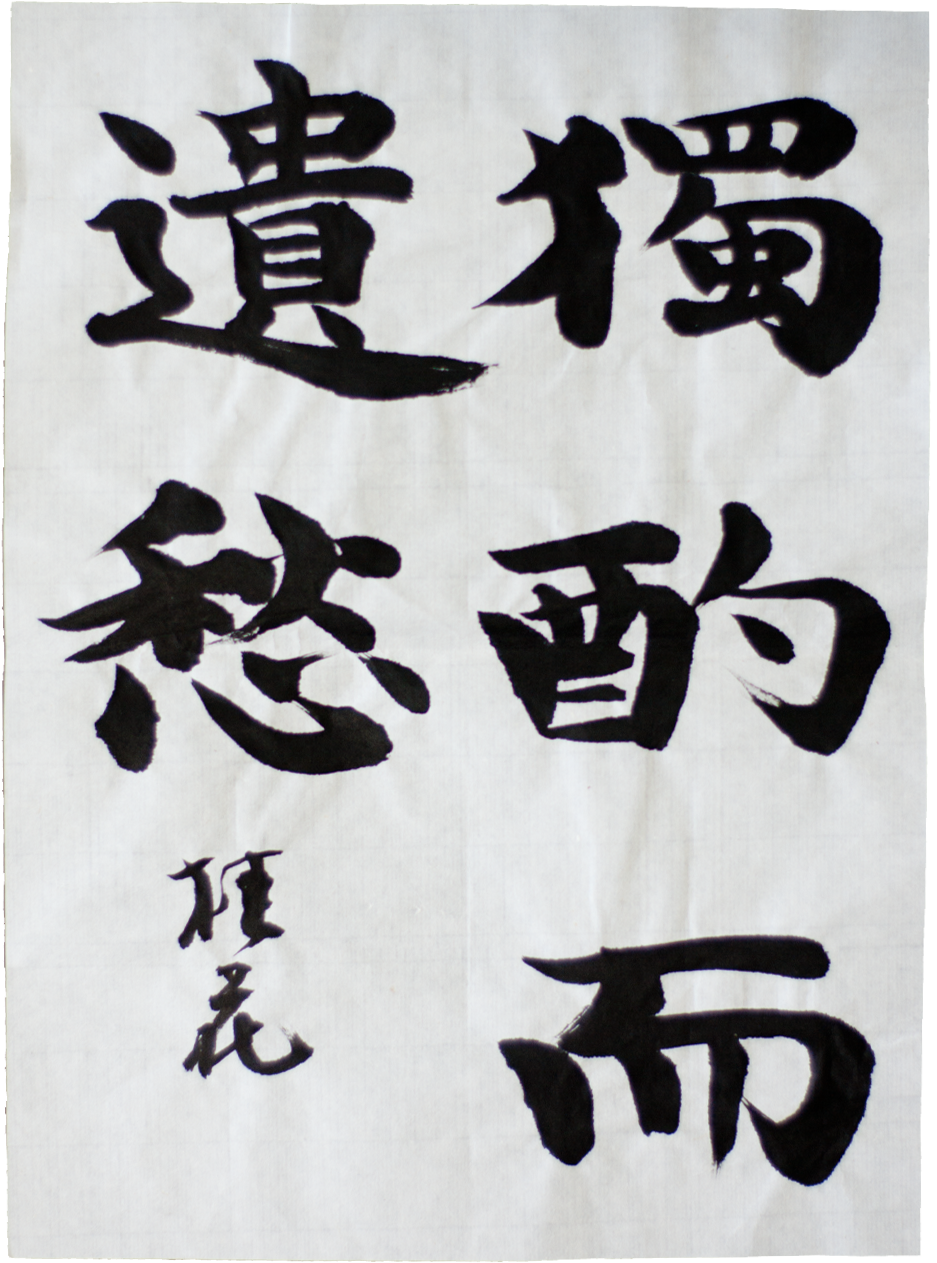 獨酌而
遺愁
桂花